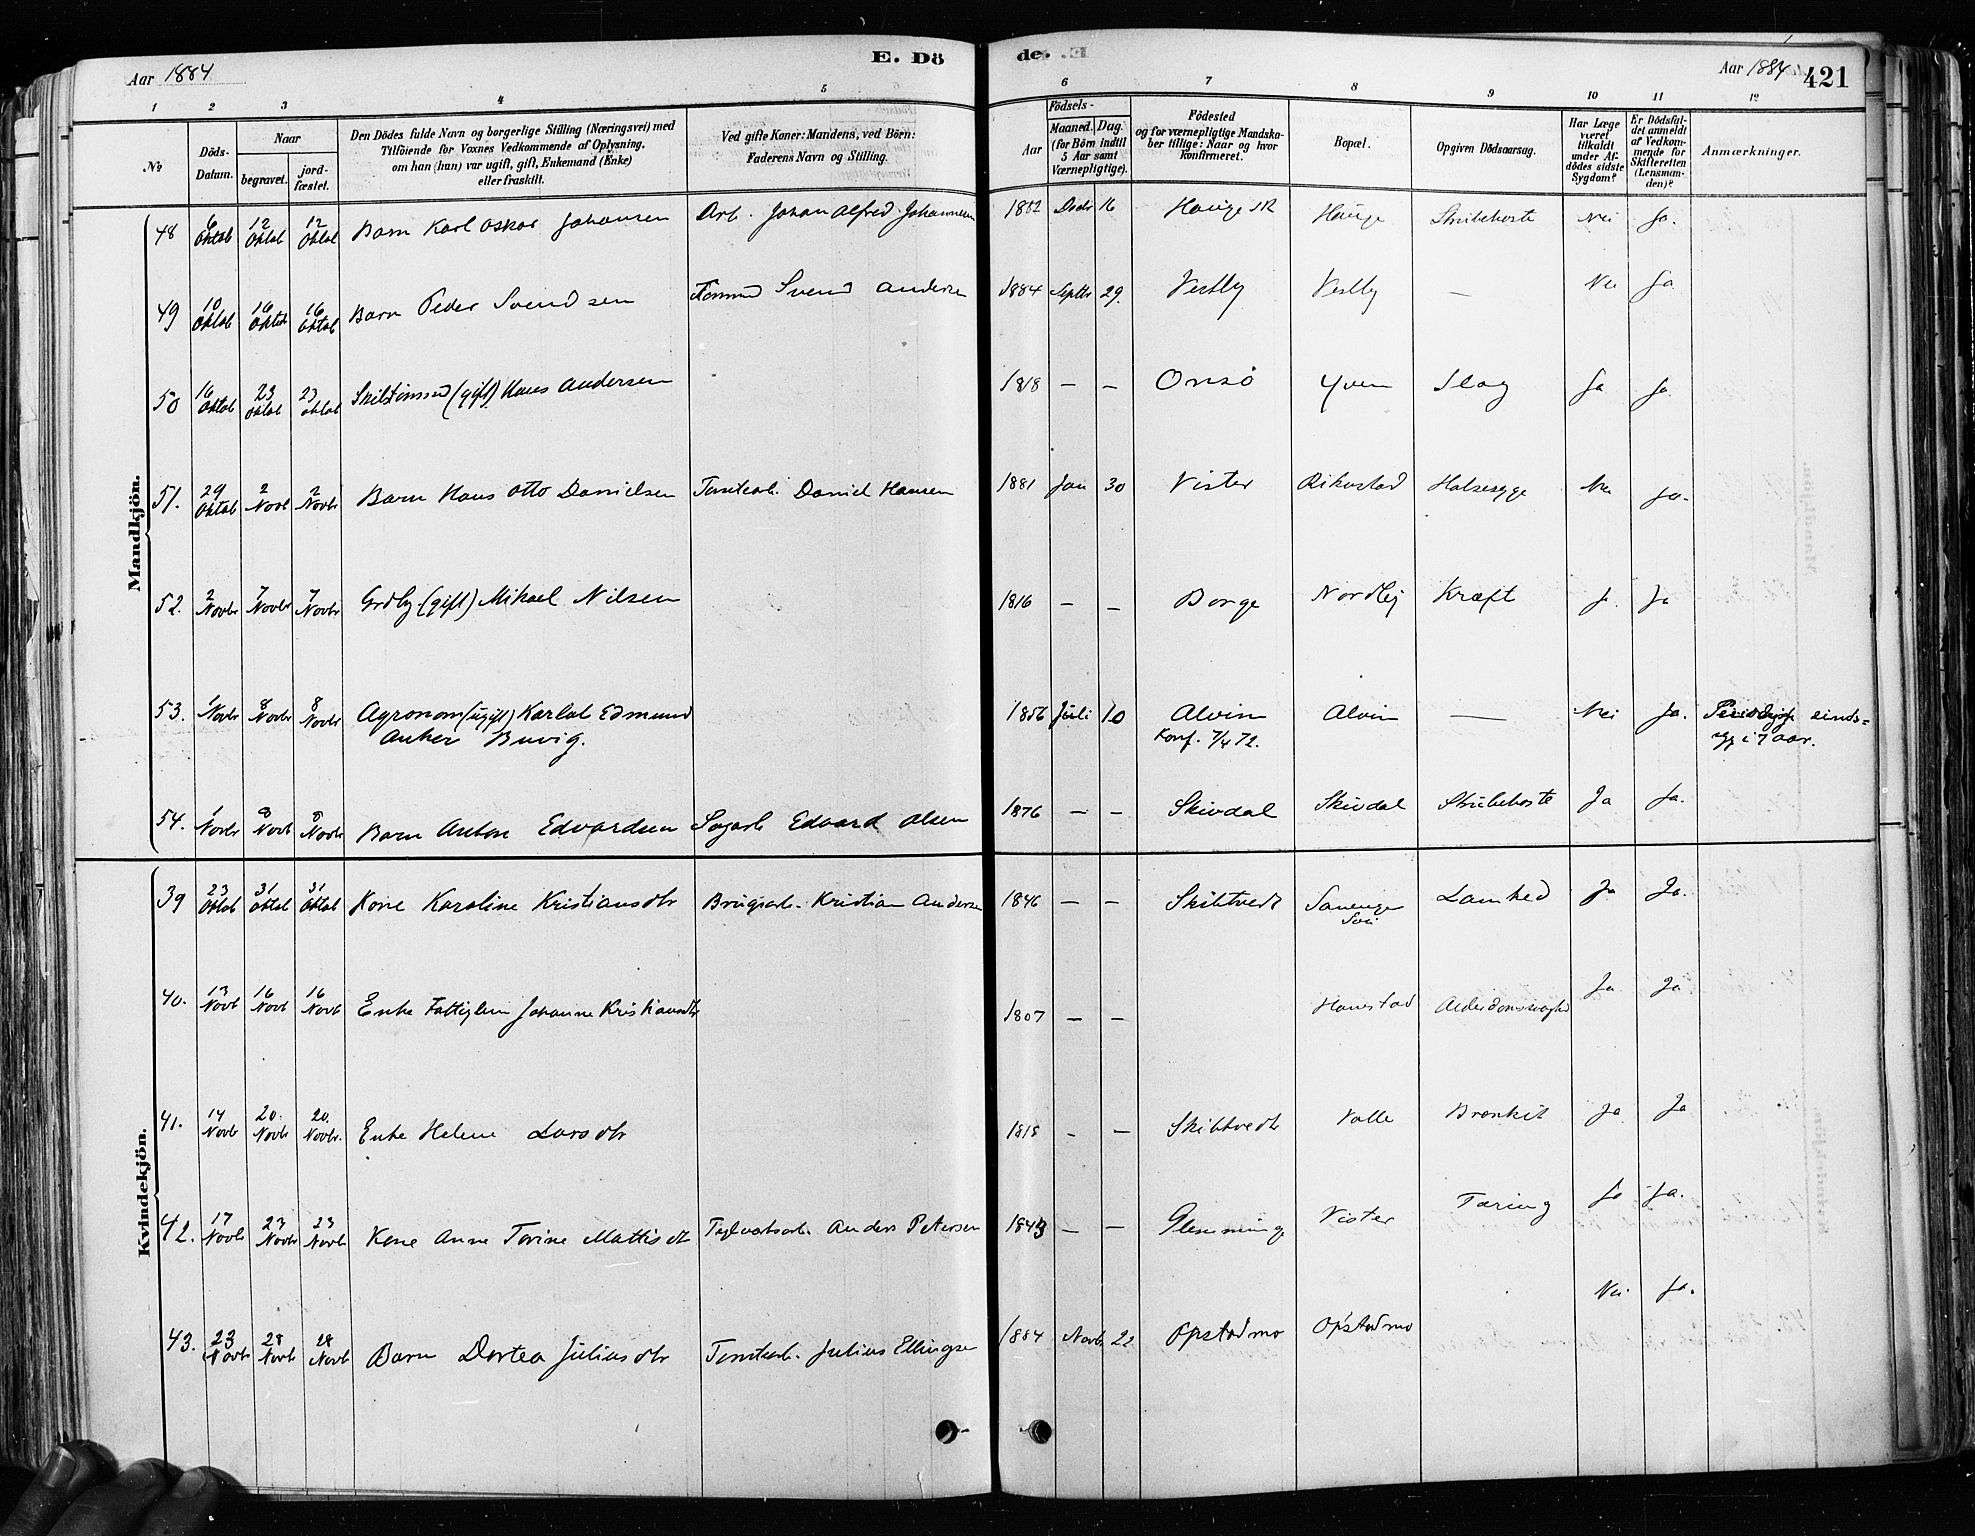 Aar 1884
E. Dö
de.
Aar 1884
421
1 2 3 4 5 6 7 8 9 10 11 12
No
Döds-Datum.
Naar
begravet.
jord-fæstet.
Den Dödes fulde Navn og borgerlige Stilling (Næringsvei) med
Tilföiende for Voxnes Vedkommende af Oplysning.
om han (hun) var ugift, gift, Enkemand (Enke)
eller fraskilt.
Ved gifte Koner: Mandens, ved Börn:
Faderens Navn og Stilling.
Födsels-
Aar
Maaned. Dag.
(for Börn indtil
5 Aar samt
Værnepligtige).
Födested
og for værnepligtige Mandska-
ber tillige: Naar og hvor
konfirmeret.
Bopæl.
Opgiven Dödsaarsag.
Har Læge
været
tilkaldt
under Af-
dödes sidste
Sygdom?
Er Dödsfal-
det anmeldt
af Vedkom-
mende for
Skifteretten
(Lensman-
den)?
Anmærkninger.
Mandkjön.
48 6 Oktob 12 Oktob 12 Oktob Barn Karl Oskar Johansen Arb. Johan Alfred Johannesen 1882 Decbr 16 Hauge Hauge Strubehoste Nei Ja.
49 10 Oktob 16 Oktob 16 Oktob Barn Peder Svendsen Svend Andersen 1884 Septbr 29. Vestby Vestby — Nei Ja
50 16 Oktob 23 Oktob 23 Oktob (gift) Hans Andersen 1818 — — Onsö Yven Slag Ja Ja.
51. 29 Oktob 2 Novb 2 Novbr Barn Hans Otto Danielsen Tomtearb. Daniel Hansen 1881 Jan 30 Vister Rikustad Halssyge Nei Ja.
52. 2 Novbr 7 Novbr 7 Novbr Grdby (gift) Mikael Nilsen 1816 — — Borge Nordby Kræft J. Ja
53. 1 Novbr 8 Novbr 8 Novbr Agronom (ugift) Karlot Edmund
Anker Buvig.
1856 Juli 10 Alvim Alvim — Nei Ja. sinds=
Konf. 7/4 72.
syg i 7 aar.
54. 1 Novbr 8 Novb 8 Novbr Barn Anton Edvardsen Sagarb Edvard Olsen 1876 — — Skivdal Skivdal Strubehoste Ja Ja.
Kvindekjön.
39 23 Oktob 31 Oktob 31 Oktob Kone Karoline Kristiansdtr Brugsarb. Kristian Andersen 1846 — — Skibtvedt Lamhed Ja Ja.
40. 13 Novb 16 Novb 16 Novb Enke Fattiglem Johanne Kristiansdtr 1807 — — Hanestad Alderdomssvaghed Ja Ja
41. 14 Novbr 20. Novbr 20. Novbr. Enke Helene Larsdtr 1815 - — Skibtvedt Valle Bronkit Ja Ja
42. 17 Novbr 23 Novbr 23 Novbr Kone Anne Torine Mattisdtr Teglverksarb. Anders Petersen 1843 — — Glemminge Vister Tæring Ja Ja.
43. 23 Novbr 28 Novbr 28 Novbr Barn Dortea Juliusdtr Tomtearb. Julius Ellingsen 1884 Novbr 22 Opstadmo Opstadmo Nei. Ja.